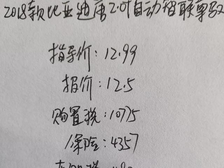 2018款比亚迪唐2.0T自动智联尊享
指导价：12.99
报价：12.5
购置税：10775
保险：4357